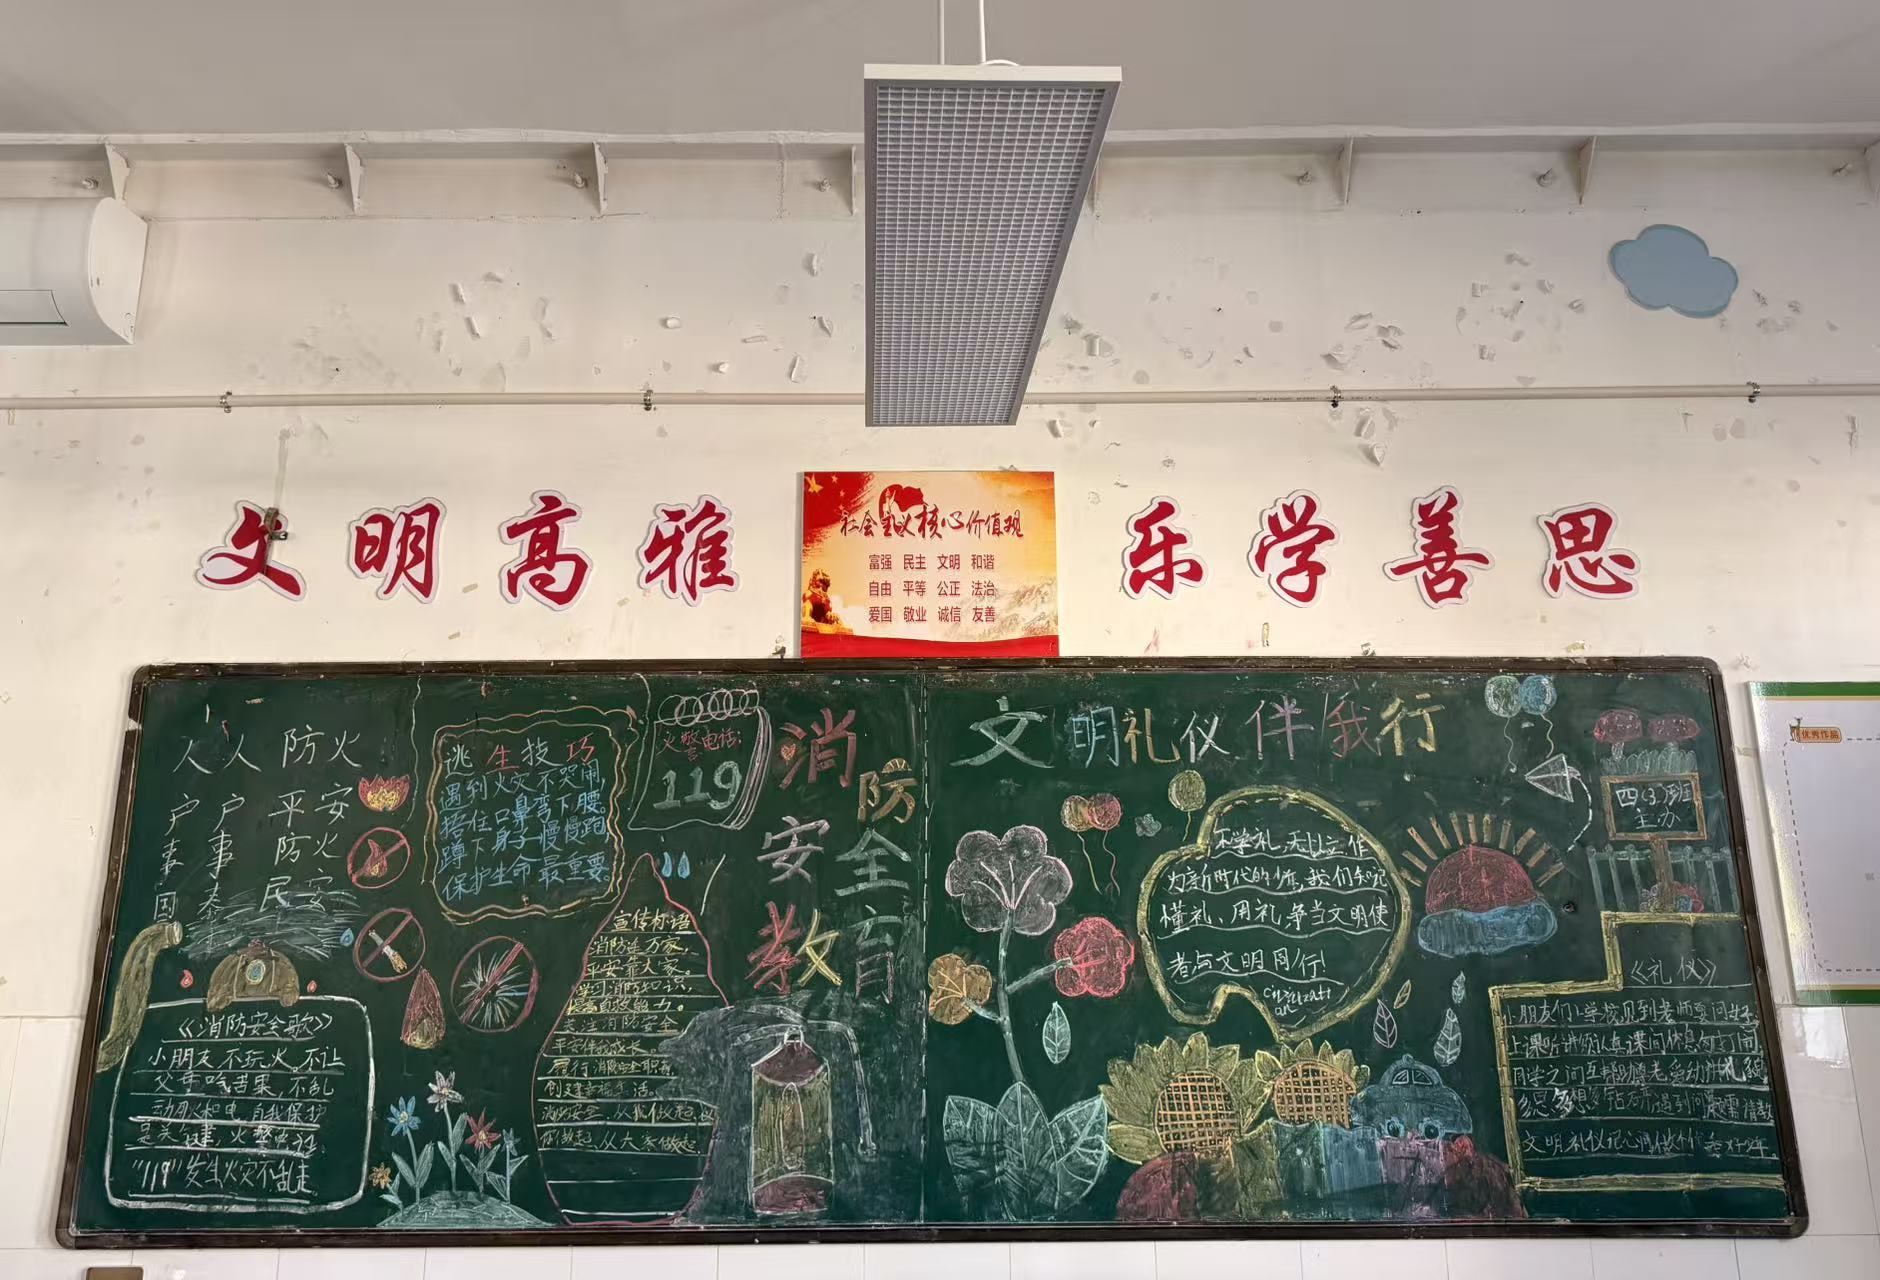 文明高雅
社会主义核心价值观
富强 民主 文明 和谐
自由 平等 公正 法治
爱国 敬业 诚信 友善
乐学善思
人人防火
户户平安
事事防火
国泰民安
逃生技巧
遇到火灾不哭闹,
捂住口鼻弯下腰。
蹲下身子慢慢跑
保护生命最重要。
火警电话:
119
消防安全教育
《消防安全歌》
小朋友不玩火。不让
父母吃苦果,不乱
动火和电,自我保护
是关键,火警电话
"119"发生火灾不乱走
宣传标语
消防连万家,
平安靠大家。
学习消防知识,
提高自救能力。
关注消防安全
平安伴我成长。
履行消防安全职责,
创建幸福生活。
消防安全、从我做起,从
你做起,从大家做起
文明礼仪伴我行
不学礼,无以立,作
为新时代的你,我们牢记
懂礼、用礼,争当文明使
者与文明同行!
四(3)班
主办
《礼仪》
小朋友们小学校见到老师要问好。
上课听讲须认真课间休息勿打闹,
同学之间互帮助尊老爱幼讲礼貌
多思多想多钻研遇到问题需请教
文明礼仪记心间做个
优秀作品